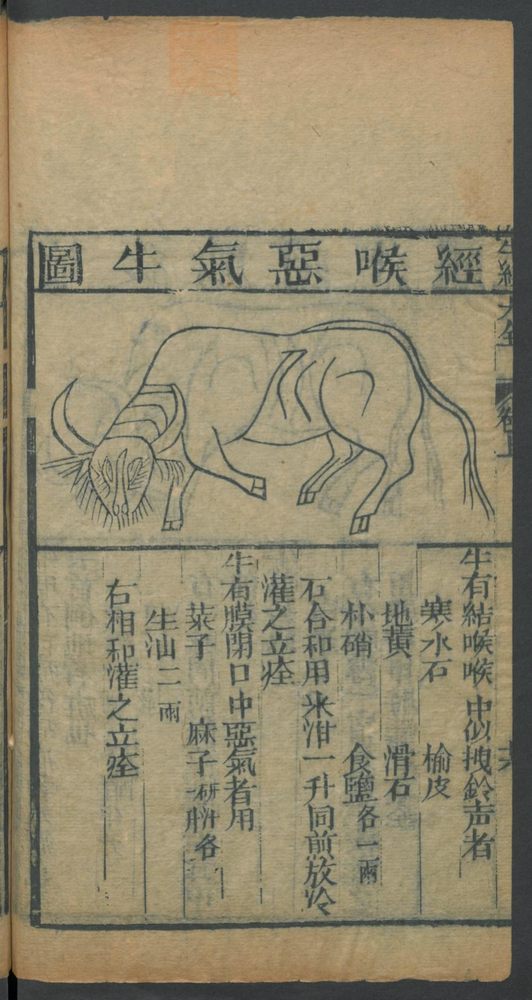 經喉惡氣牛圖
牛有結喉喉中似拽鈴声者
寒水石 榆皮
地黄 滑石
朴硝 食鹽各一兩
右合和用米泔一升同煎放冷
灌之立痊
牛有膜閉口中惡氣者用
菜子 麻子一升研汁各
生油二兩
右相和灌之立痊